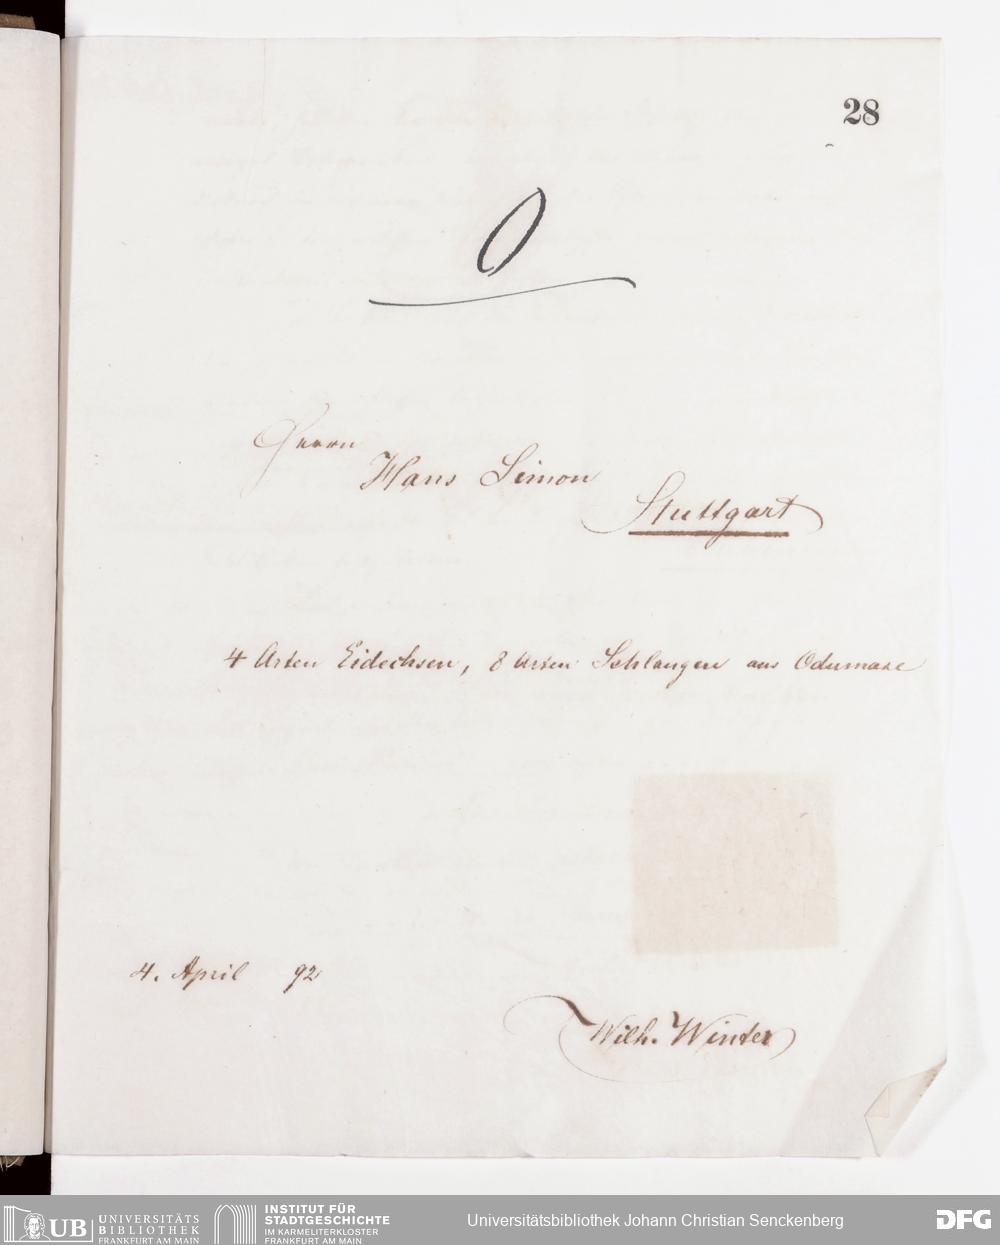 28
O
Herrn
Hans Simon
Stuttgart
4 Arten Eidechsen, 8 Arten Schlangen aus Odumase
4. April 92
Wilh. Winter
UB UNIVERSITÄTS
BIBLIOTHEK
FRANKFURT AM MAIN
INSTITUT FÜR
STADTGESCHICHTE
IM KARMELITERKLOSTER
FRANKFURT AM MAIN
Universitätsbibliothek Johann Christian Senckenberg
DFG